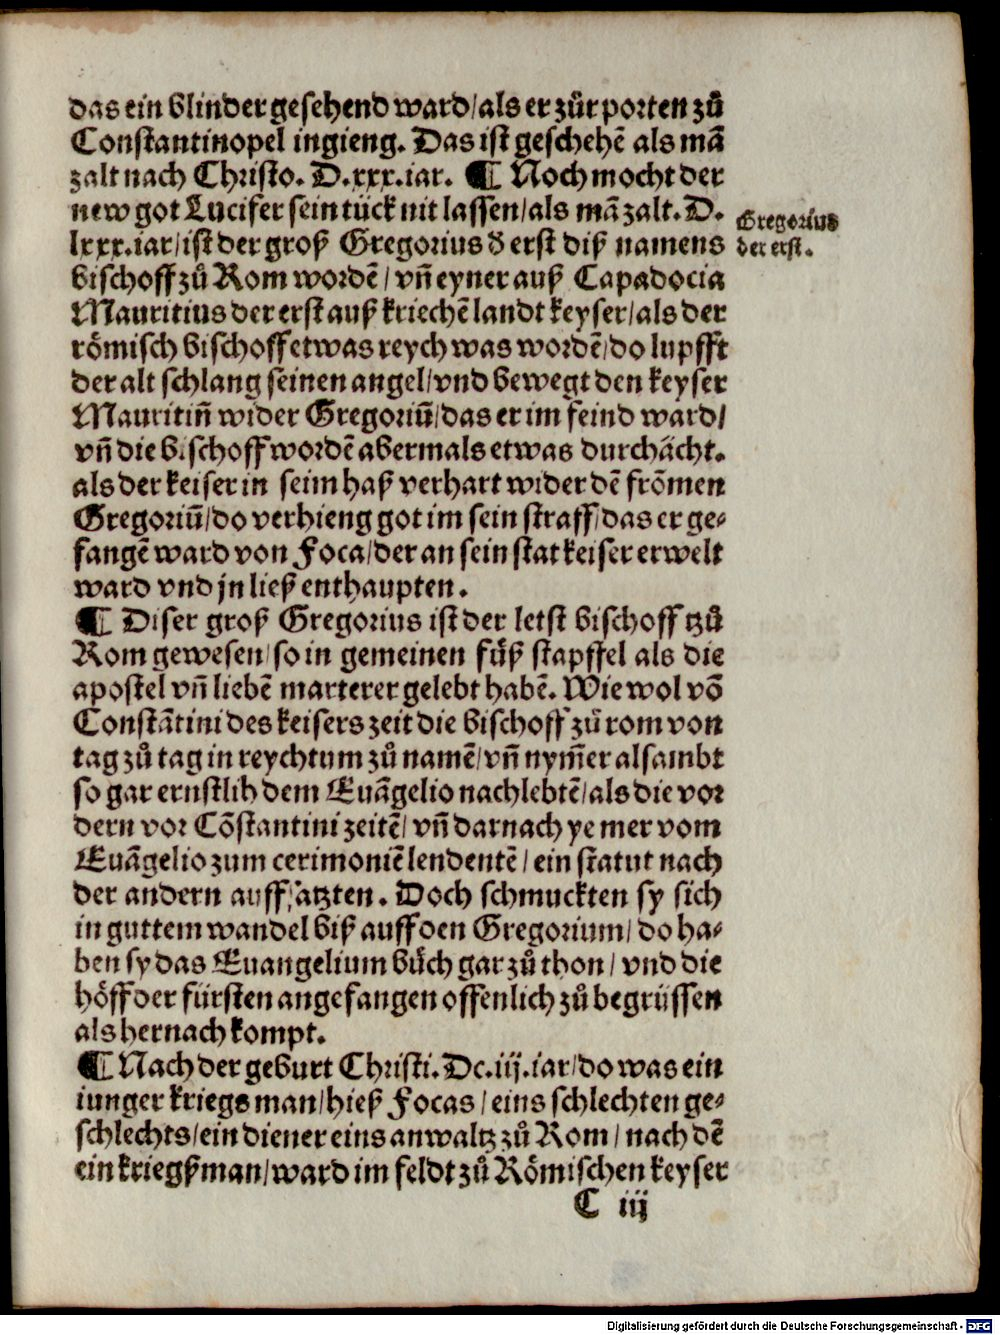 das ein blinder gesehend ward/als er zůr porten zů
Constantinopel ingieng. Das ist geschehẽ als mã
zalt nach Christo. D.xxx.iar. ¶ Noch mocht der
new got Lucifer sein tück nit lassen/als mã zalt. D.
lxxx.iar/ist der groß Gregorius d̕ erst diß namens
bischoff zů Rom wordẽ/vñ eyner auß Capadocia
Mauritius der erst auß kriechẽ landt keyser/als der
römisch bischoff etwas reych was wordẽ/do lupfft
der alt schlang seinen angel/vnd bewegt den keyser
Mauritiū wider Gregoriū/das er im feind ward/
vñ die bischoff wordẽ abermals etwas durchächt.
als der keiser in seim haß verhart wider dẽ frõmen
Gregoriū/do verhieng got im sein straff/das er ge⸗
fangẽ ward von Foca/der an sein stat keiser erwelt
ward vnd jn ließ enthaupten.
¶ Diser groß Gregorius ist der letst bischoff tzů
Rom gewesen/so in gemeinen fůß stapffel als die
apostel vñ liebẽ marterer gelebt habẽ. Wie wol võ
Constãtini des keisers zeit die bischoff zů rom von
tag zů tag in reychtum zů namẽ/vñ nym̃er alsambt
so gar ernstlih dem Euãgelio nachlebtẽ/als die vor
dern vor Cõstantini zeitẽ/vñ darnach ye mer vom
Euãgelio zum cerimoniẽ lendentẽ/ein statut nach
der andern auffsatzten. Doch schmuckten sy sich
in guttem wandel biß auff den Gregorium/do ha⸗
ben sy das Euangelium bůch gar zů thon/vnd die
höff der fürsten angefangen offenlich zů begrüssen
als hernach kompt.
¶ Nach der geburt Christi. Dc.iij.iar/do was ein
iunger kriegs man/hieß Focas/eins schlechten ge⸗
schlechts/ein diener eins anwaltz zů Rom/nach dẽ
ein kriegßman/ward im feldt zů Römischen keyser
C iij
Gregorius
der erst.
Digitalisierung gefördert durch die Deutsche Forschungsgemeinschaft - DFG